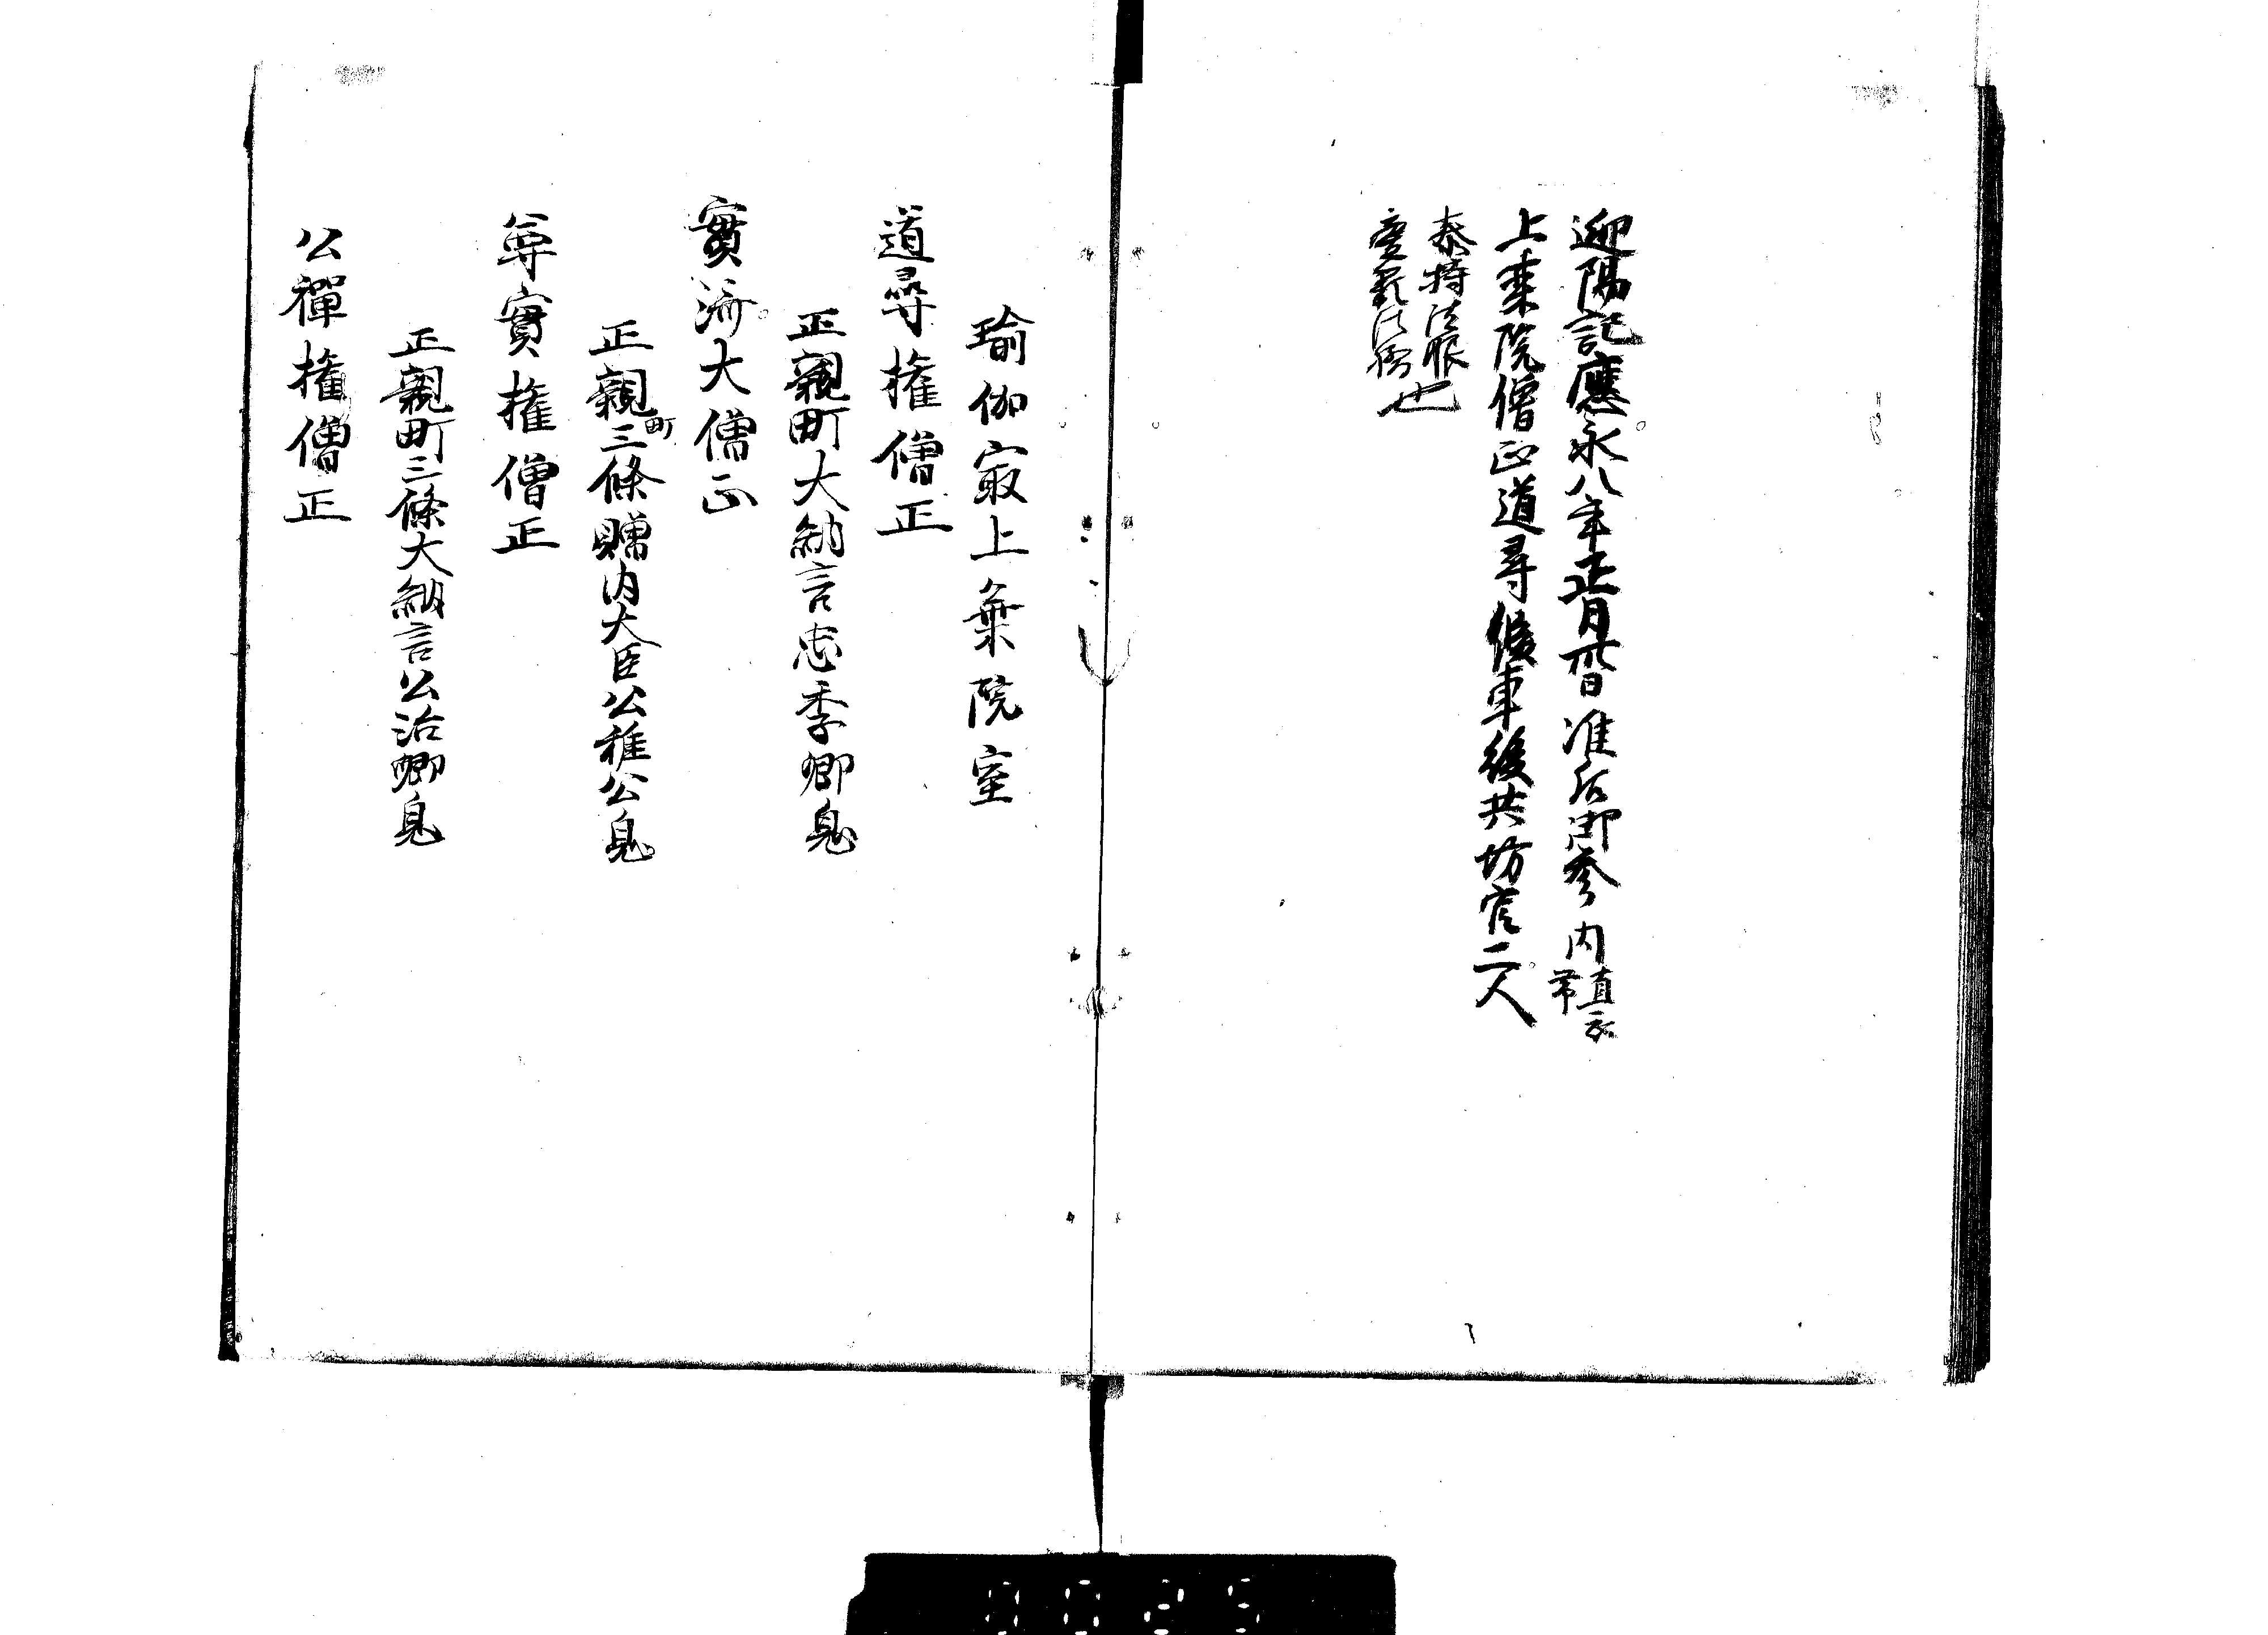 迎陽記應永八年正月廿四日准后御参内直衣
常
上乗院僧正道尋候車後共坊官二人
泰持法眼
慶乳法橋也
瑜伽寂上乗院室
道尋権僧正
正親町大納言忠季卿息
實済大僧正
正親町三條贈内大臣公雅公息
尊實権僧正
正親町三條大納言公治卿息
公禪権僧正